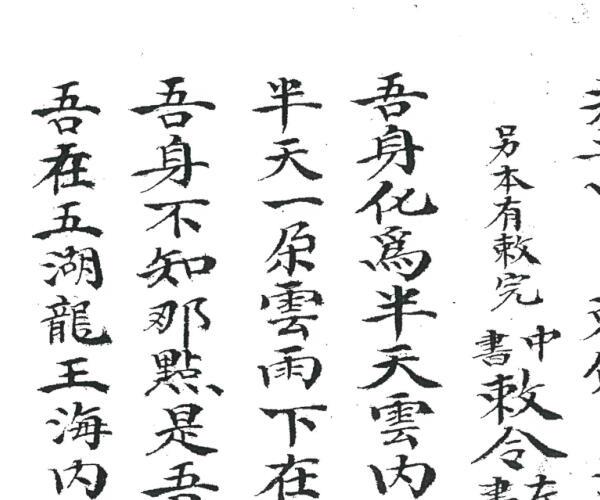 另本有敕完
中書敕令
吾身化爲半天雲内
半天一朶雲雨下在
吾身不知那點是吾
吾在五湖龍王海内